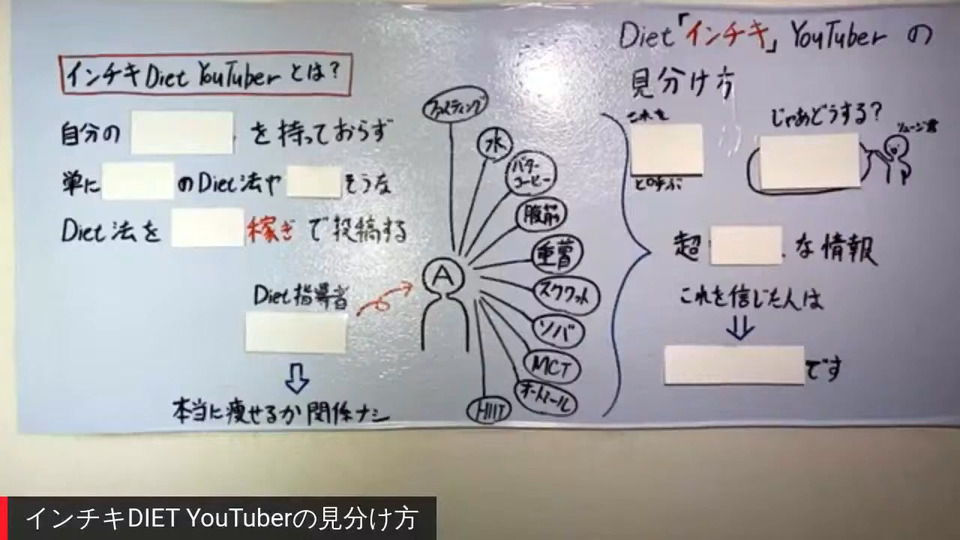 Diet「インチキ」YouTuber の
見分け方
インチキ Diet YouTuber とは?
自分の を持っておらず
単に のDiet法や そうな
Diet法を 稼ぎ で投稿する
Diet指導者
本当に痩せるか関係ナシ
A
ファスティング
水
バター
コーヒー
腹筋
重曹
スクワット
ソバ
MCT
オートミール
HIIT
これを
と呼ぶ
じゃあどうする?
リュージ君
超 な情報
これを信じた人は
です
インチキDIET YouTuberの見分け方